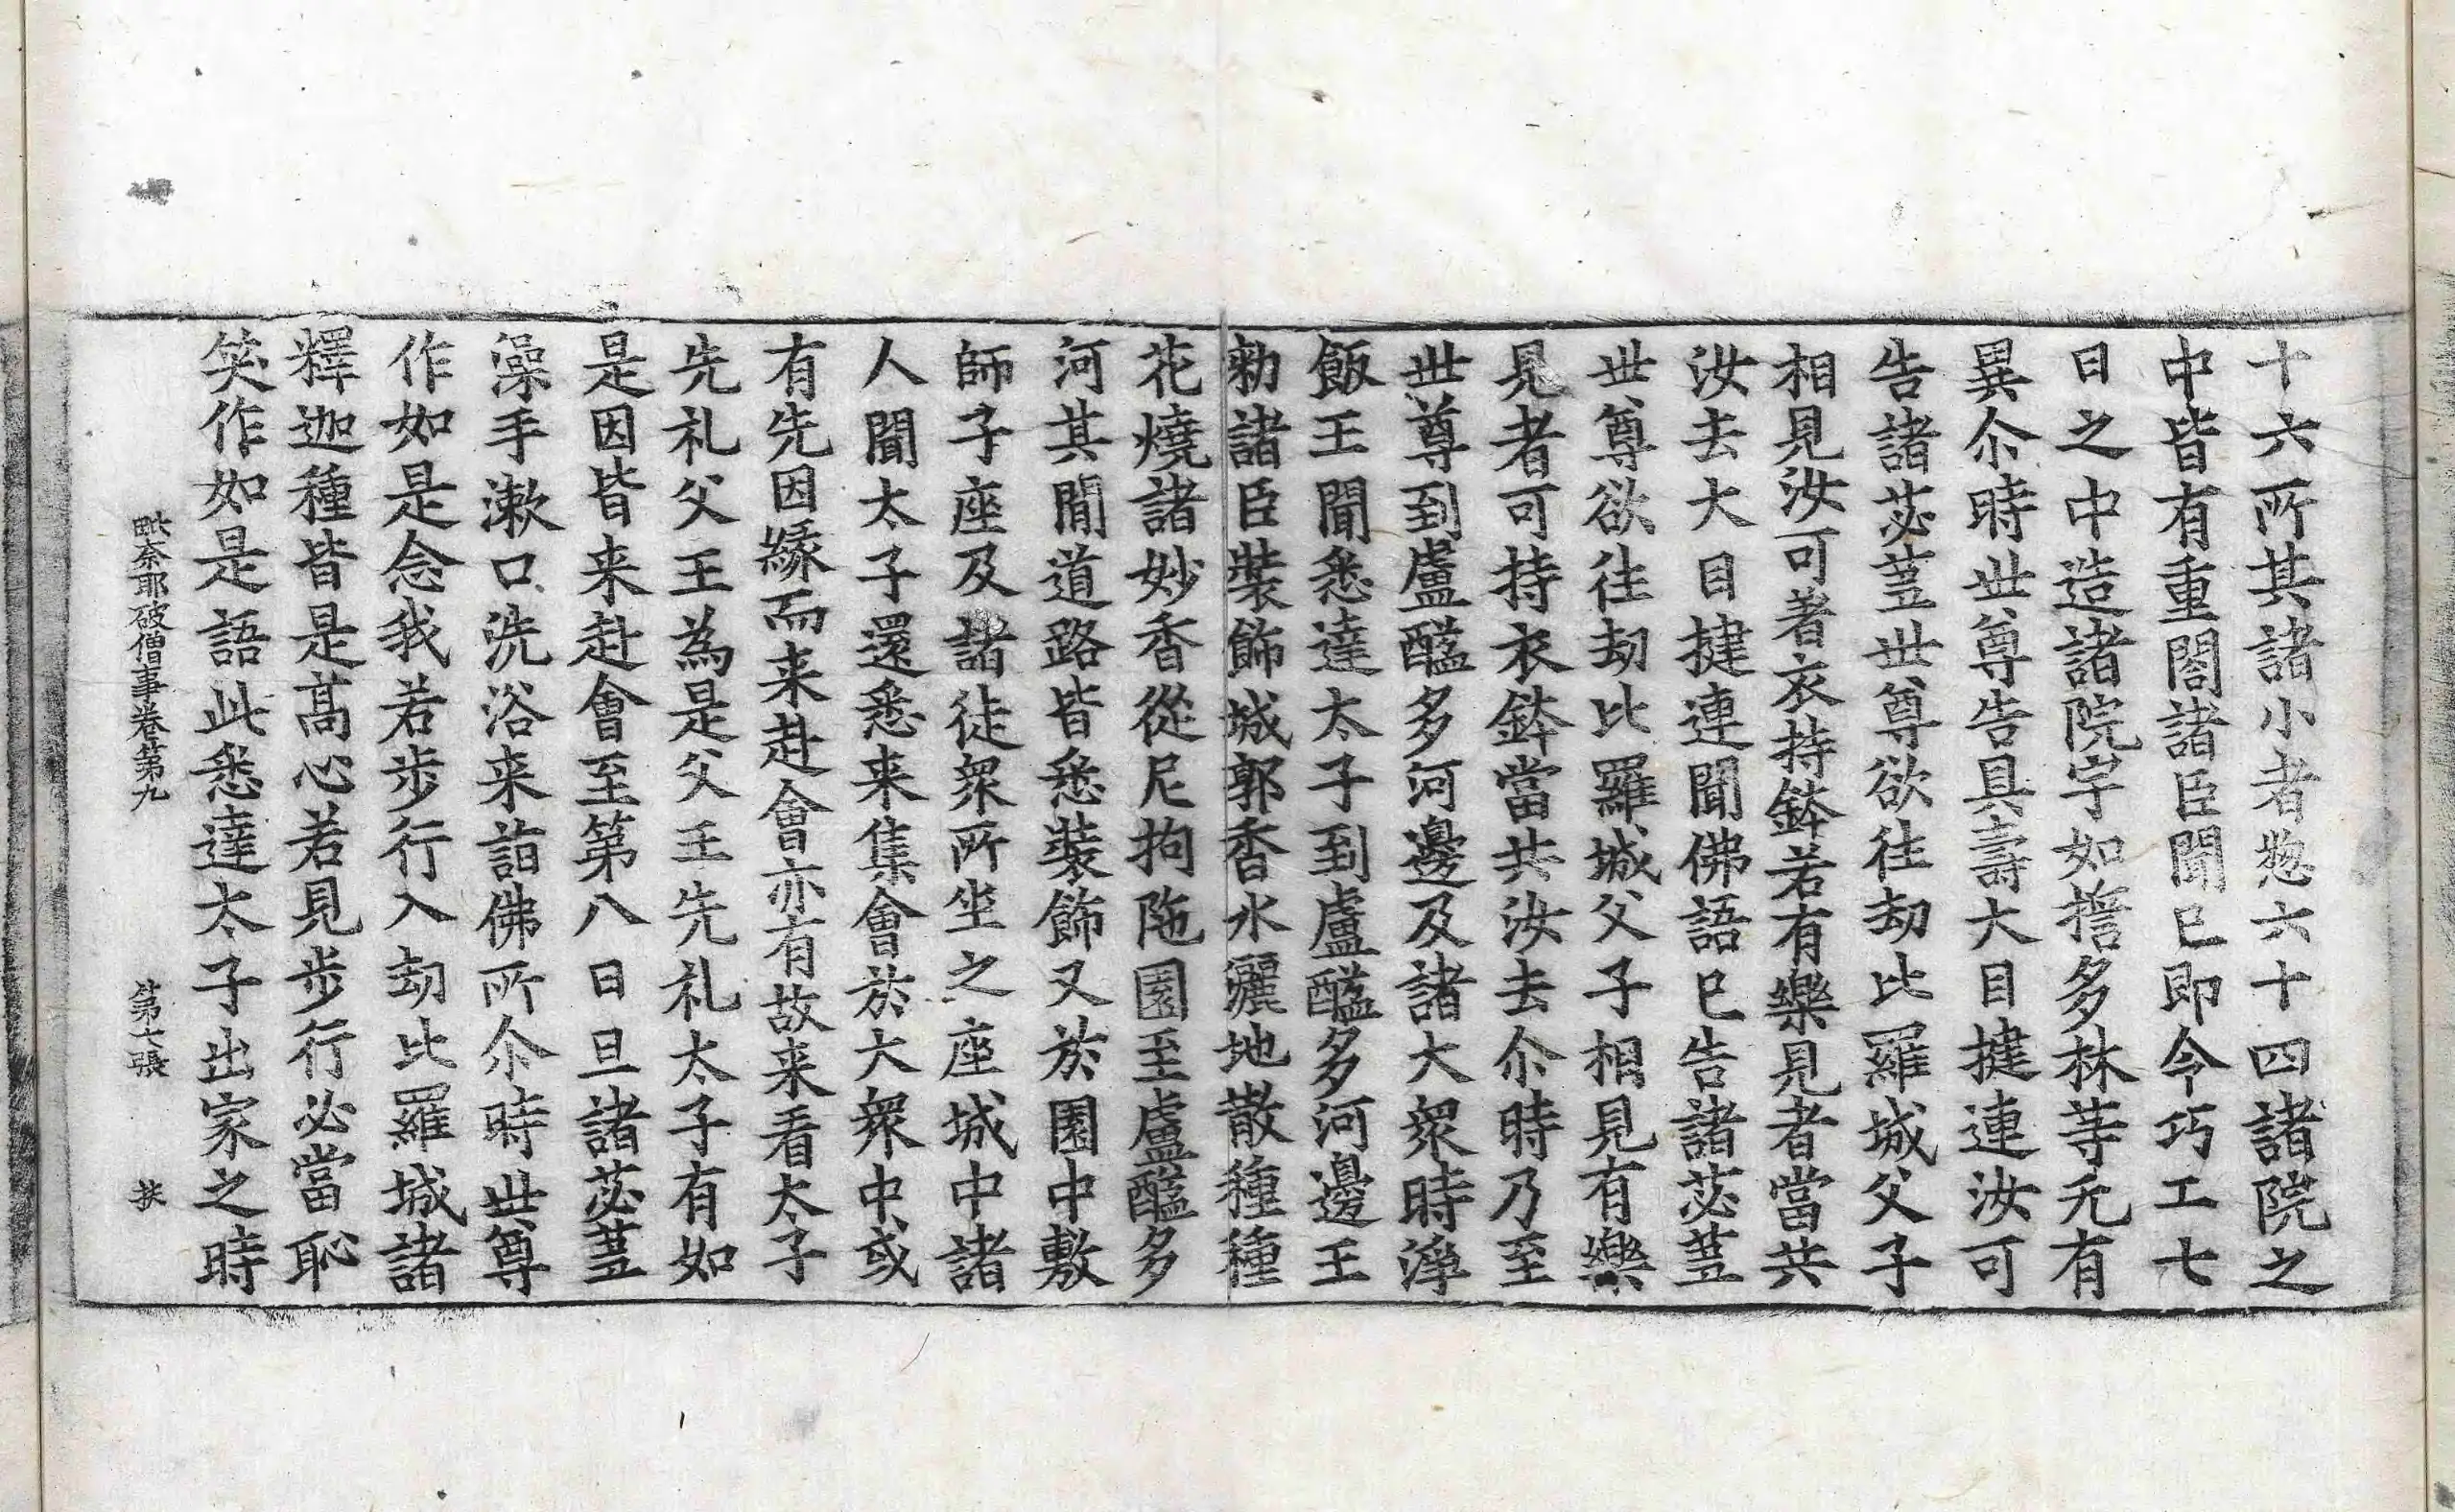 十六所其諸小者惣六十四諸院之
中皆有重閣諸臣聞已即令巧工七
日之中造諸院宇如擔多林等无有
異尒時世尊告具壽大目揵連汝可
告諸苾蒭世尊欲往劫比羅城父子
相見汝可著衣持鉢若有樂見者當共
汝去大目揵連聞佛語已告諸苾蒭
世尊欲往劫比羅城父子相見有樂
見者可持衣鉢當共汝去尒時乃至
世尊到盧醯多河邊及諸大衆時淨
飯王聞悉達太子到盧醯多河邊王
勑諸臣裝飾城郭香水灑地散種種
花燒諸妙香從尼拘陁園至盧醯多
河其閒道路皆悉裝飾又於園中敷
師子座及諸徒衆所坐之座城中諸
人聞太子還悉来集會於大衆中或
有先因緣而来赴會亦有故来看太子
先礼父王為是父王先礼太子有如
是因皆来赴會至第八日旦諸苾蒭
澡手漱口洗浴来詣佛所尒時世尊
作如是念我若步行入劫比羅城諸
釋迦種皆是高心若見步行必當恥
笑作如是語此悉達太子出家之時
毗奈耶破僧事卷第九 第六張 扶